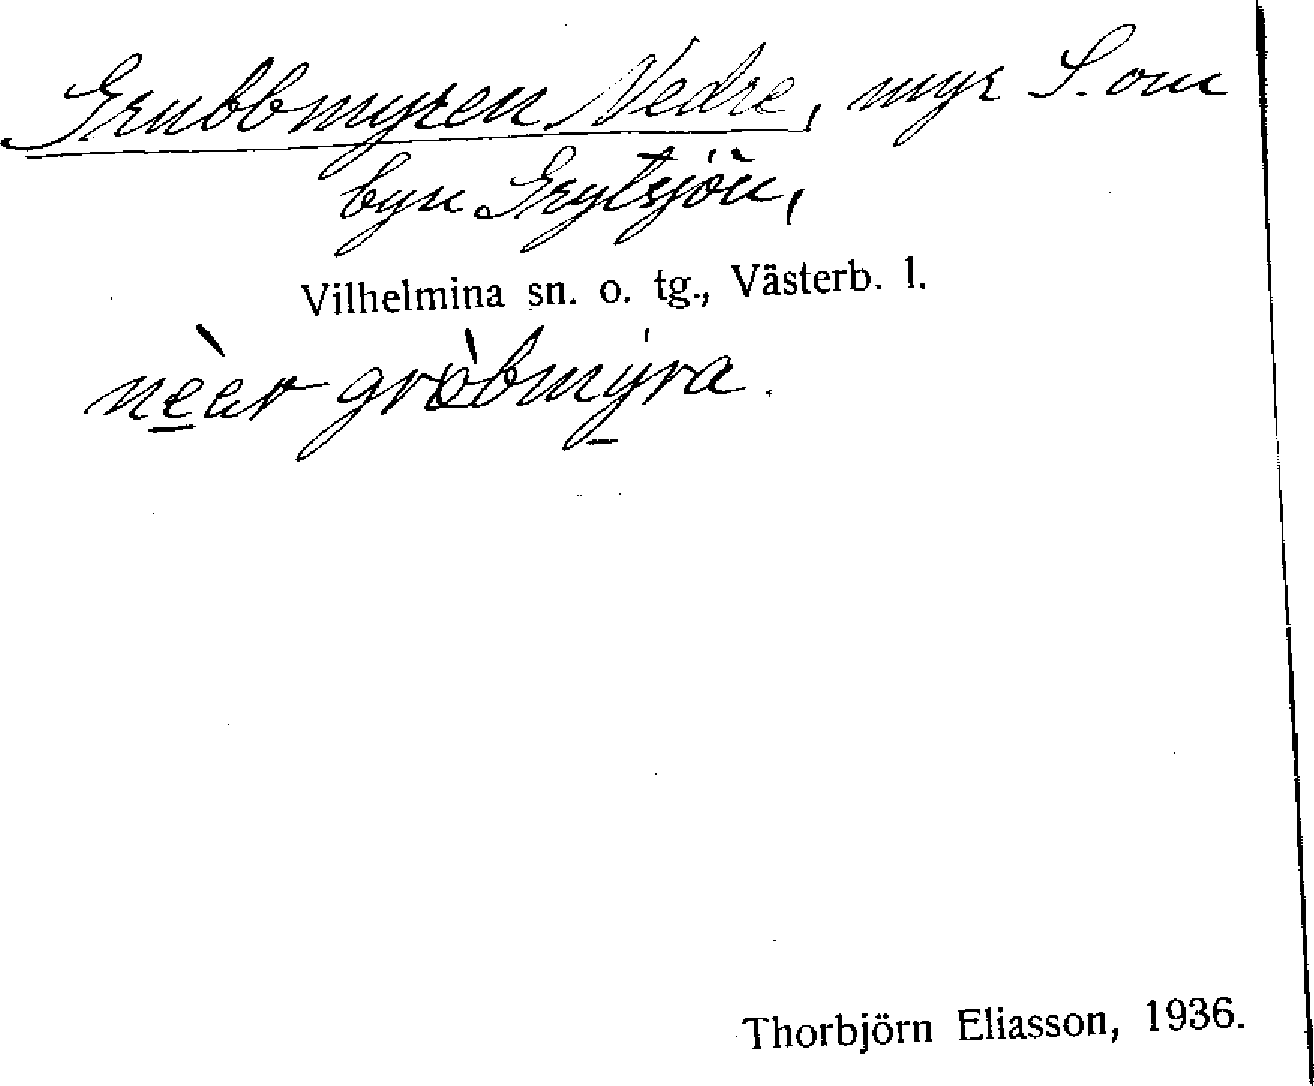 Grubbmyren Nedre, myr S. om
byn Grytsjön,
Vilhelmina sn. o. tg., Västerb. l.
gròbmýra.
Thorbjörn Eliasson, 1936.